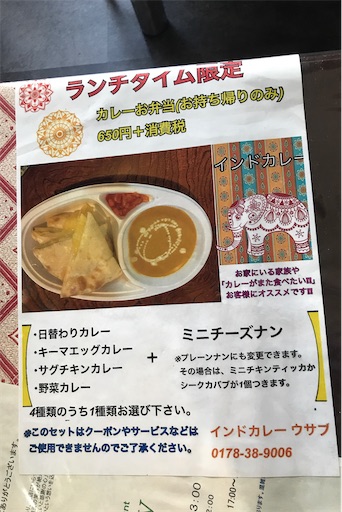 ランチタイム限定
カレーお弁当(お持ち帰りのみ)
650円＋消費税
インドカレー
お家にいる家族や
「カレーがまた食べたい!!」
お客様にオススメです!!
・日替わりカレー
・キーマエッグカレー
・サグチキンカレー
・野菜カレー
+
ミニチーズナン
※プレーンナンにも変更できます。
その場合は、ミニチキンティッカか
シークカバブが1個つきます。
4種類のうち1種類お選び下さい。
※このセットはクーポンやサービスなどは
ご使用できませんのでご了承ください。
インドカレー ウサブ
0178-38-9006
ありがとうございます。
17:00～